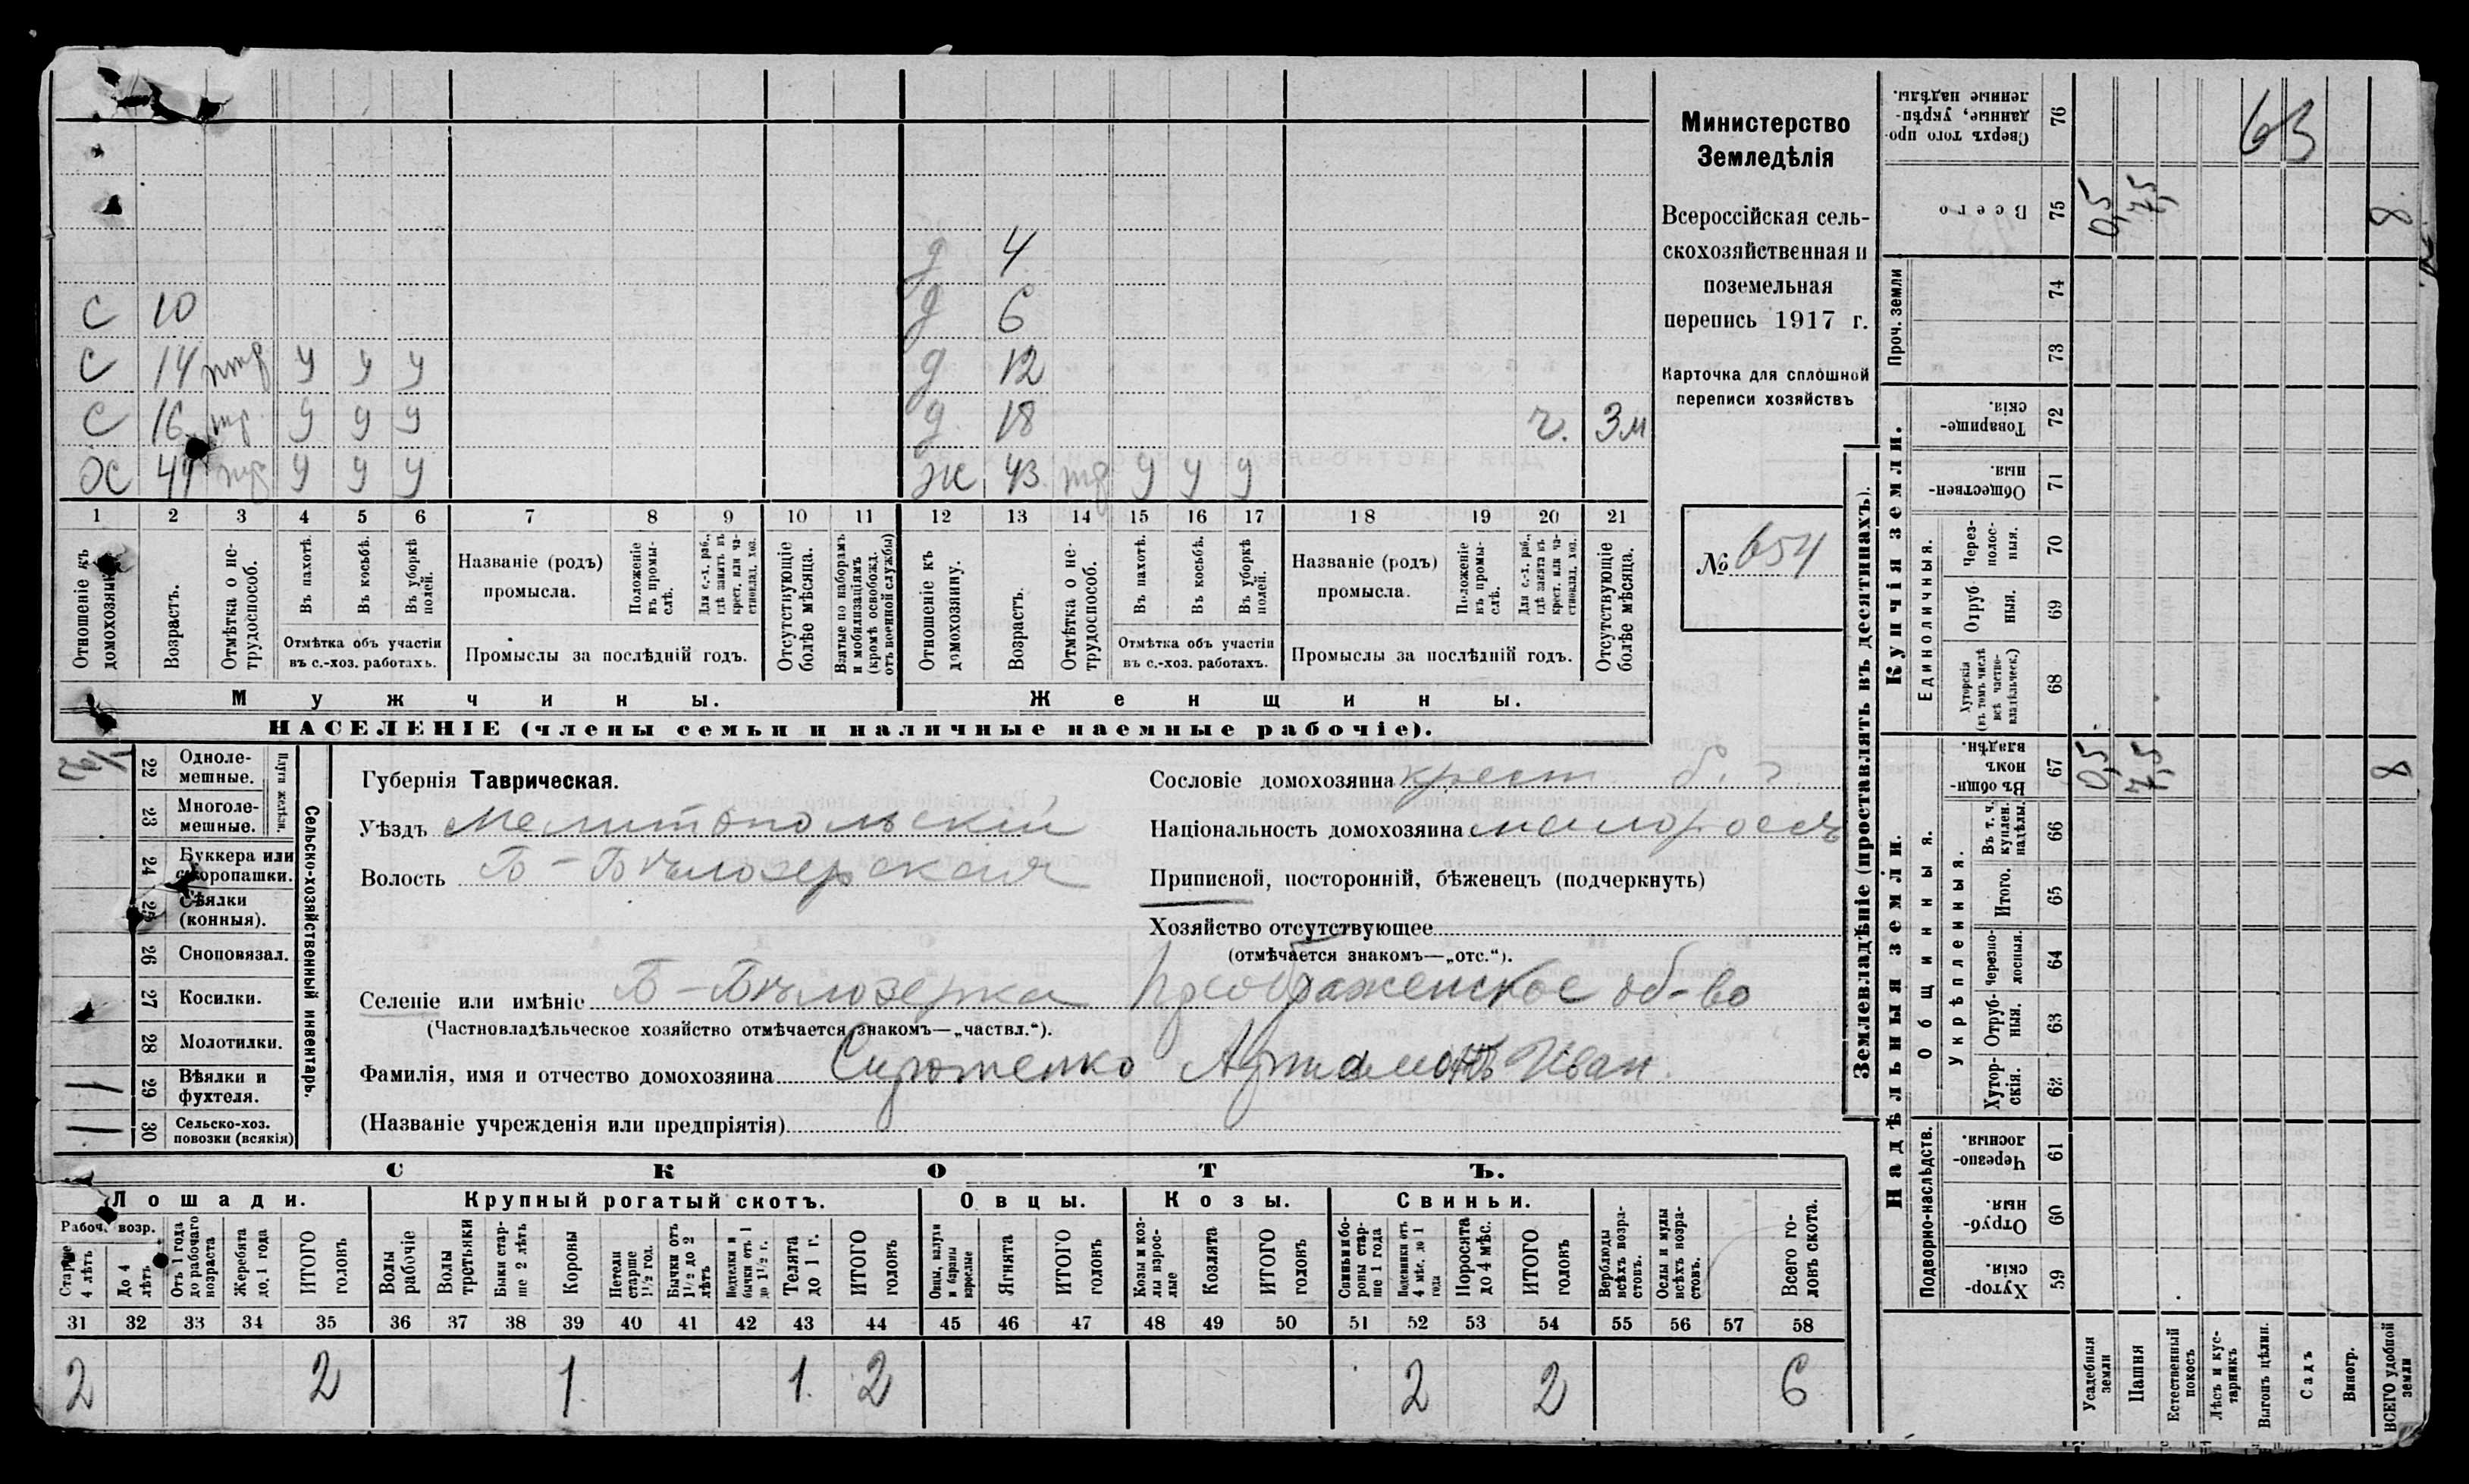 Министерство
Земледѣлія
Всероссійская сель-
скохозяйственная и
поземельная
перепись 1917 г.
Карточка для сплошной
переписи хозяйствъ
№ 654
д 4
С 10 д 6
С 14 У У У д 12
С 16 У У У д. 18 г. 3м
Ж 43 У У У
1 2 3 4 5 6 7 8 9 10 11 12 13 14 15 16 17 18 19 20 21
Отношеніе къ домохозяину.
Возрастъ.
Отмѣтка о не-трудоспособ.
Въ пахотѣ.
Въ косьбѣ.
Въ уборкѣ полей.
Отмѣтка объ участіи
въ с.-хоз. работахъ.
Названіе (родъ)
промысла.
Положеніе въ промы-слѣ.
Для с.-х. раб., гдѣ занятъ въ крест. или ча-стновлад. хоз.
Промыслы за послѣдній годъ.
Отсутствующіе болѣе мѣсяца.
Взятые по наборамъ и мобилизаціямъ (кромѣ освобожд. отъ военной службы)
Отношеніе къ домохозяину.
Возрастъ.
Отмѣтка о не-трудоспособ.
Въ пахотѣ.
Въ косьбѣ.
Въ уборкѣ полей.
Отмѣтка объ участіи
въ с.-хоз. работахъ.
Названіе (родъ)
промысла.
Положеніе въ промы-слѣ.
Для с.-х. раб., гдѣ занята въ крест. или ча-стновлад. хоз.
Промыслы за послѣдній годъ.
Отсутствующіе болѣе мѣсяца.
Мужчины.
Женщины.
НАСЕЛЕНІЕ (члены семьи и наличные наемные рабочіе).
22 Одноле-мешные.
23 Многоле-мешные.
Плуги желѣзн.
24 Буккера или скоропашки.
25 Сѣялки (конныя).
26 Сноповязал.
27 Косилки.
28 Молотилки.
29 Вѣялки и фухтеля. 1
30 Сельско-хоз. повозки (всякія) 1
Сельско-хозяйственный инвентарь.
Губернія Таврическая.
Уѣздъ Мелитопольскій
Волость Б-Бѣлозерская
Сословіе домохозяина крест.
Національность домохозяина малороссъ
Приписной, посторонній, бѣженецъ (подчеркнуть)
Хозяйство отсутствующее
(отмѣчается знакомъ—„отс.“).
Селеніе или имѣніе Б-Бѣлозерка Преображенское об-во
(Частновладѣльческое хозяйство отмѣчается знакомъ—„частвл.“).
Фамилія, имя и отчество домохозяина Сиротенко Артамонъ Иван.
(Названіе учрежденія или предпріятія)
СКОТЪ.
Лошади. Крупный рогатый скотъ. Овцы. Козы. Свиньи.
Рабоч. возр.
Старше 4 лѣтъ
До 4 лѣтъ
Отъ 1 года до рабочаго возраста
Жеребята до 1 года
ИТОГО головъ
Волы рабочіе
Волы третьяки
Быки стар-ше 2 лѣтъ
Коровы
Нетели старше 1½ год.
Бычки отъ 1½ до 2 лѣтъ
Подтелки и бычки отъ 1 до 1½ г.
Телята до 1 г.
ИТОГО головъ
Овцы, валухи и бараны взрослые
Ягнята
ИТОГО головъ
Козы и коз-лы взрос-лые
Козлята
ИТОГО головъ
Свиньи и бо-ровы стар-ше 1 года
Подсвинки отъ 4 мѣс. до 1 года
Поросята до 4 мѣс.
ИТОГО головъ
Верблюды всѣхъ возра-стовъ.
Ослы и мулы всѣхъ возра-стовъ.
Всего го-ловъ скота.
31 32 33 34 35 36 37 38 39 40 41 42 43 44 45 46 47 48 49 50 51 52 53 54 55 56 57 58
2 2 1 1 2 2 2 6
Землевладѣніе (проставлять въ десятинахъ).
Купчія земли.
Надѣльныя земли.
63
76 Сверхъ того про-данные, укрѣп-ленные надѣлы.
75 Всего 0,5 7,5 8
Проч. земли
74
73
72 Товарище-скія.
71 Обществен-ныя.
Единоличныя.
70 Через-полос-ныя.
69 Отруб-ныя.
68 Хуторскія (въ томъ числѣ всѣ частно-владѣльческ.)
Общинныя.
67 Въ общи-номъ владѣн. 0,5 7,5 8
Укрѣпленныя.
66 Въ т. ч. куплен. надѣлы.
65 Итого.
64 Черезпо-лосныя.
63 Отруб-ныя.
62 Хутор-скія.
Подворно-наслѣдств.
61 Черезпо-лосныя.
60 Отруб-ныя.
59 Хутор-скія.
Усадебныя земли
Пашня
Естественный покосъ
Лѣсъ и кус-тарникъ
Выгонъ цѣлин.
Садъ
Виногр.
ВСЕГО удобной земли